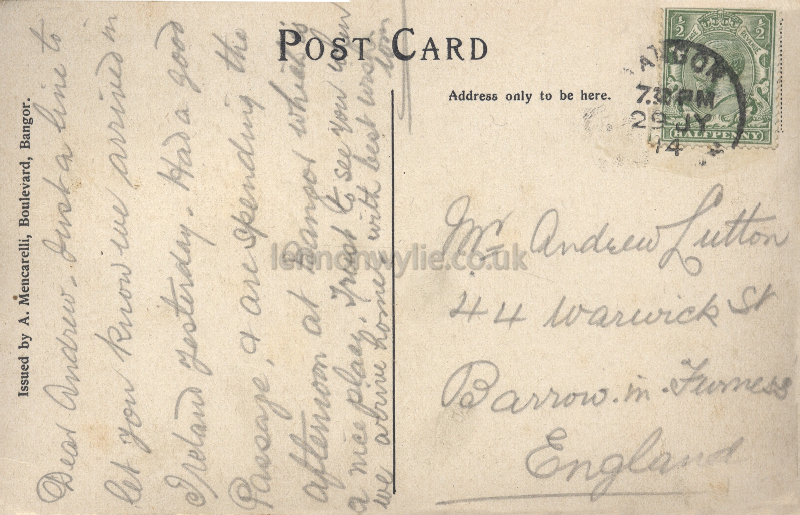 POST CARD
Address only to be here.
Issued by A. Mencarelli, Boulevard, Bangor.
Dear Andrew. Just a line to
let you know we arrived in
Ireland yesterday. Had a good
Passage, & are spending the
afternoon at Bangor which is
a nice place, Trust to see you when
we arrive home, with best wishes
Tom
BANGOR
7.30 PM
29 JY
14
HALFPENNY
Mr Andrew Lutton
44 Warwick St
Barrow-in-Furness
England
lennonwylie.co.uk